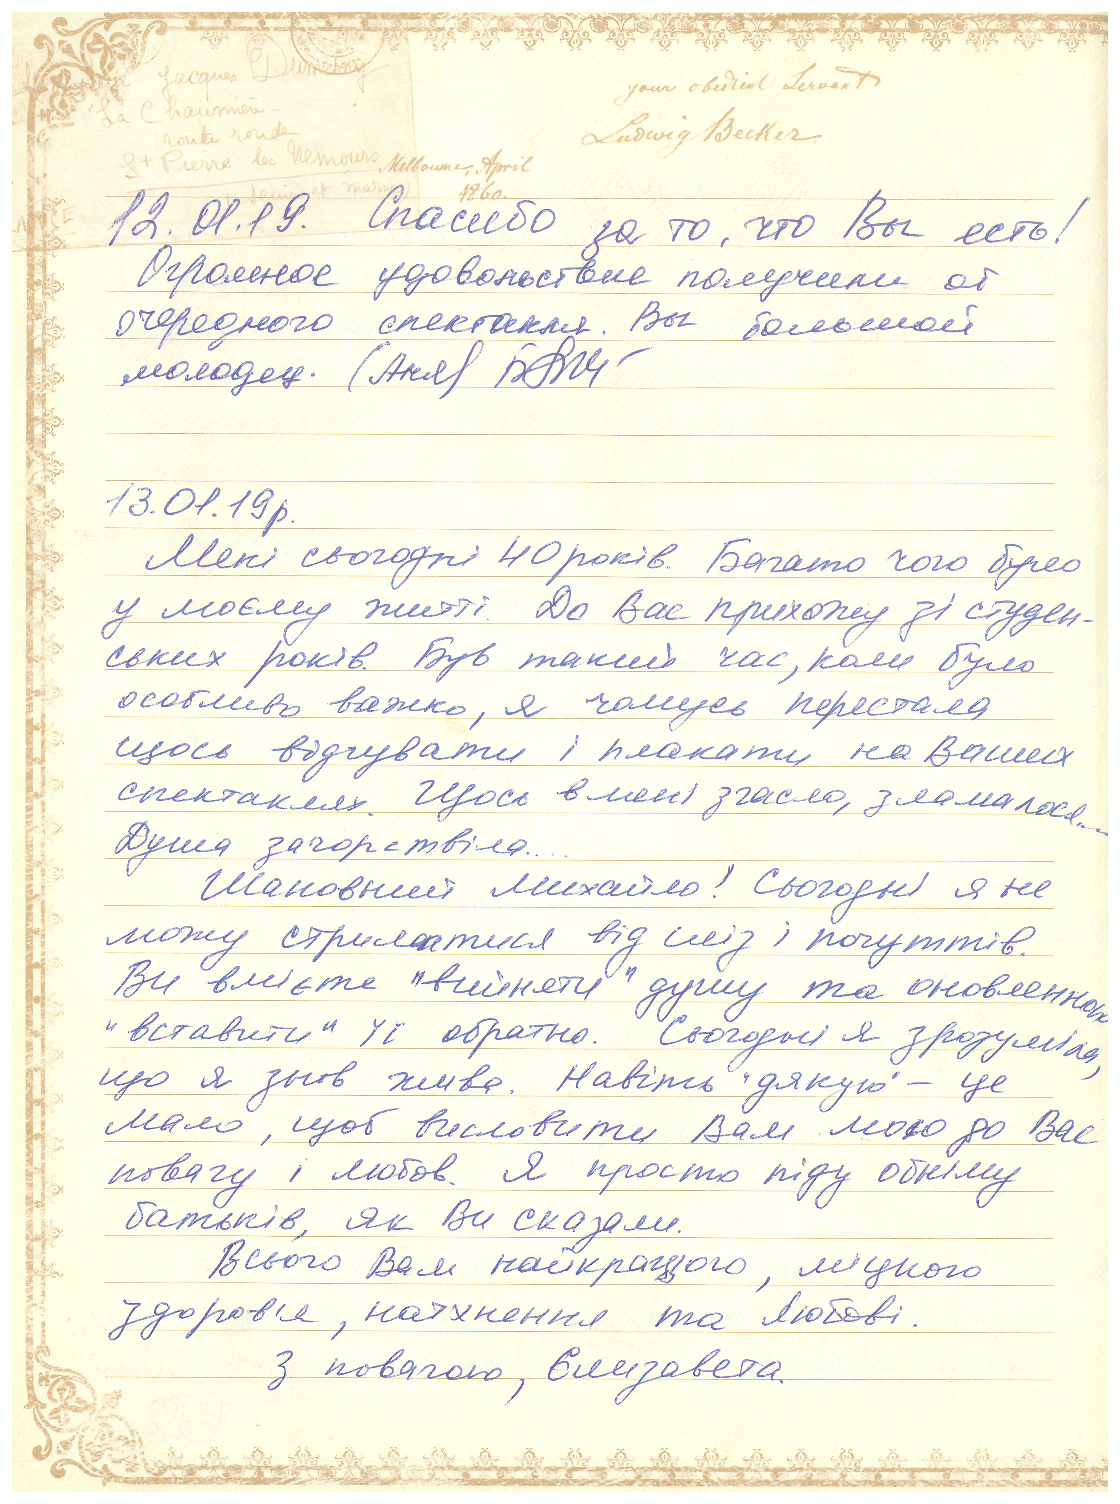 Jacques Dumesny
La Chaumière
route ronde
St Pierre les Nemours
your obedient Servant
Ludwig Becker
Melbourne, April
1860.
12.01.19. Спасибо за то, что Вы есть!
Огромное удовольствие получили от
очередного спектакля. Вы большой
молодец. (Аня)
13.01.19р.
Мені сьогодні 40 років. Багато чого було
у моєму житті. До Вас прихожу зі студен-
ських років. Був такий час, коли було
особливо важко, я чомусь перестала
щось відчувати і плакати на Ваших
спектаклях. Щось в мені згасло, зламалося...
Душа зачерствіла...
Шановний Михайло! Сьогодні я не
можу стриматися від сліз і почуттів.
Ви вмієте "вийняти" душу та оновленною
"вставити" її обратно. Сьогодні я зрозуміла,
що я знов жива. Навіть "дякую" – це
мало, щоб висловити Вам мою до Вас
повагу і любов. Я просто піду обніму
батьків, як Ви сказали.
Всього Вам найкращого, міцного
здоров'я, натхнення та любові.
З повагою, Єлизавета.